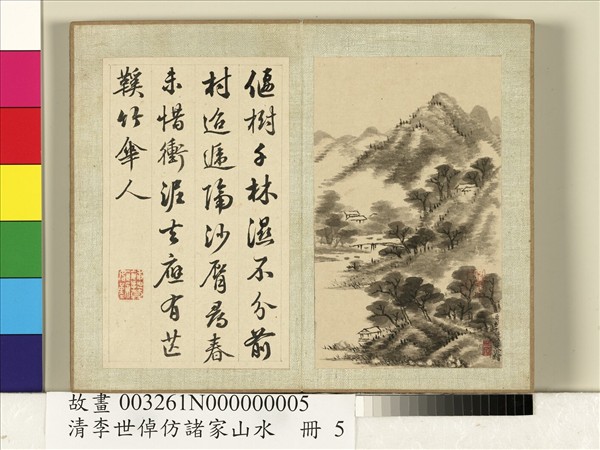 偃樹千林濕不分前
村迢遞隔沙脣尋春
未惜衝泥去應有芒
鞵竹傘人
故畫 003261N000000005
清李世倬仿諸家山水 冊 5